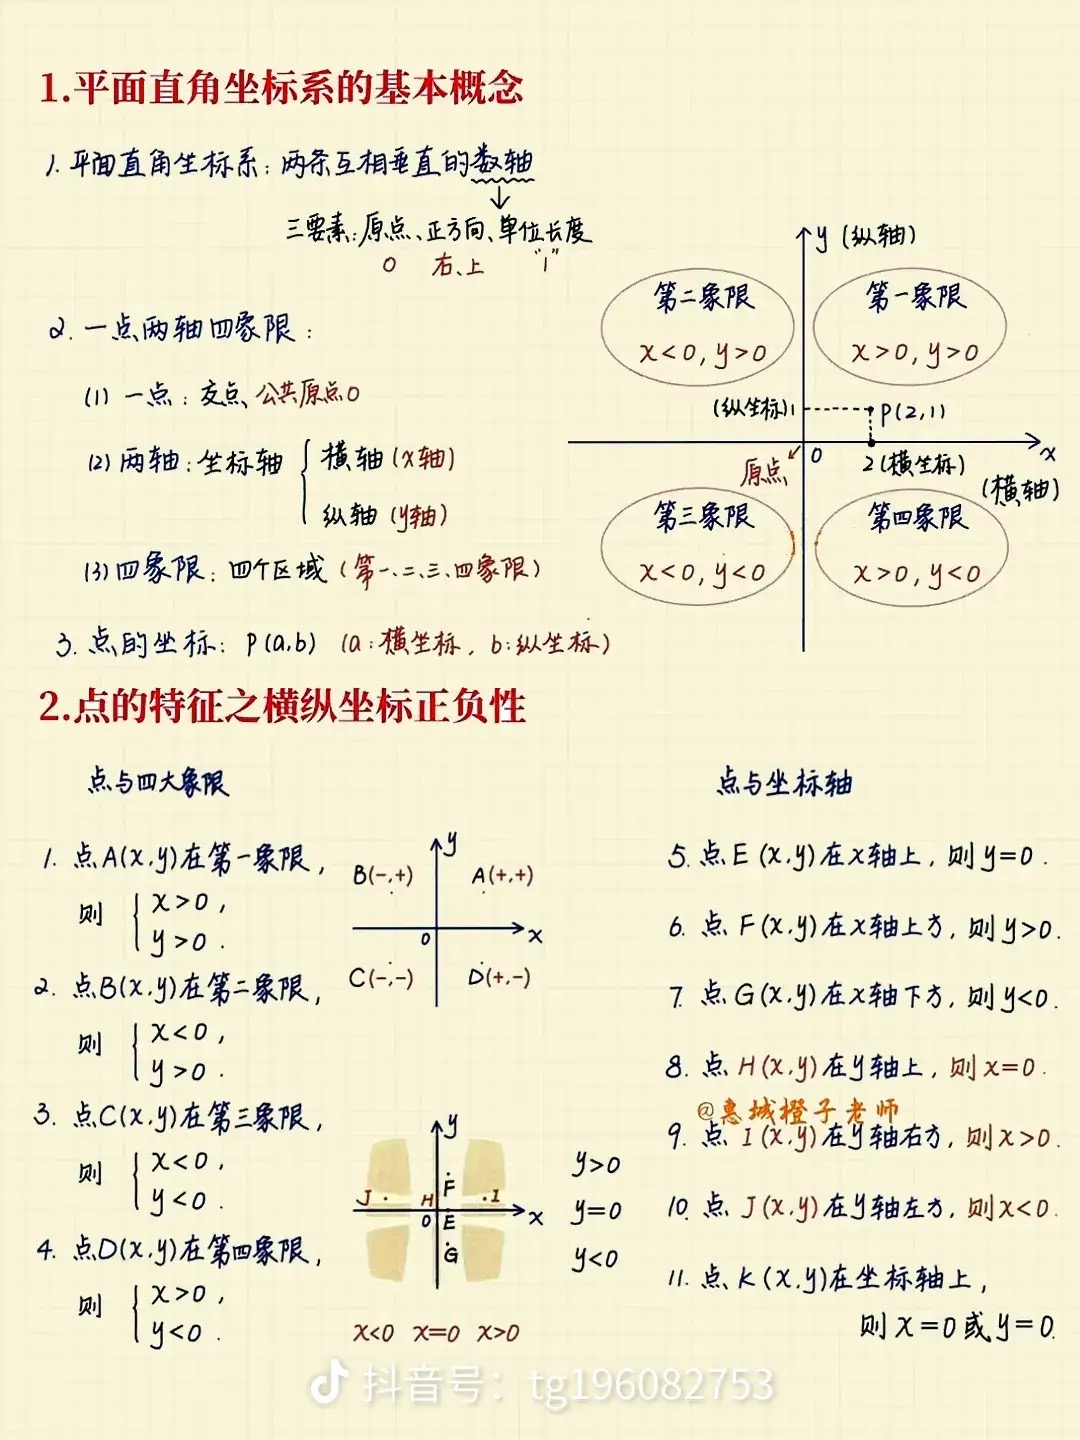 1.平面直角坐标系的基本概念
1. 平面直角坐标系: 两条互相垂直的数轴
三要素: 原点、正方向、单位长度
0 右、上 "1"
2. 一点两轴四象限:
(1) 一点: 交点、公共原点0
(2) 两轴: 坐标轴
横轴(x轴)
纵轴(y轴)
(3) 四象限: 四个区域 (第一、二、三、四象限)
3. 点的坐标: P(a,b) (a:横坐标, b:纵坐标)
y (纵轴)
第二象限
x<0, y>0
第一象限
x>0, y>0
(纵坐标)1
P(2,1)
原点
0
2(横坐标)
x
(横轴)
第三象限
x<0, y<0
第四象限
x>0, y<0
2.点的特征之横纵坐标正负性
点与四大象限
1. 点A(x,y)在第一象限,
则
x>0,
y>0.
2. 点B(x,y)在第二象限,
则
x<0,
y>0.
3. 点C(x,y)在第三象限,
则
x<0,
y<0.
4. 点D(x,y)在第四象限,
则
x>0,
y<0.
y
B(-,+) A(+,+)
0 x
C(-,-) D(+,-)
y
F
J H I
0 E x
G
y>0
y=0
y<0
x<0 x=0 x>0
点与坐标轴
5. 点E(x,y)在x轴上, 则y=0.
6. 点F(x,y)在x轴上方, 则y>0.
7. 点G(x,y)在x轴下方, 则y<0.
8. 点H(x,y)在y轴上, 则x=0.
@惠城橙子老师
9. 点I(x,y)在y轴右方, 则x>0.
10. 点J(x,y)在y轴左方, 则x<0.
11. 点K(x,y)在坐标轴上,
则x=0或y=0.
抖音号: tg196082753